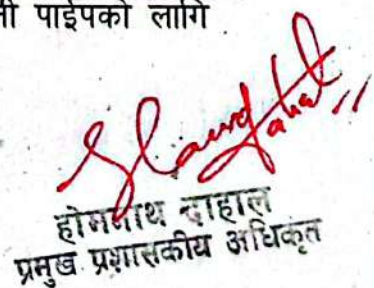 पाईपको लागि
होमनाथ दाहाल
प्रमुख प्रशासकीय अधिकृत